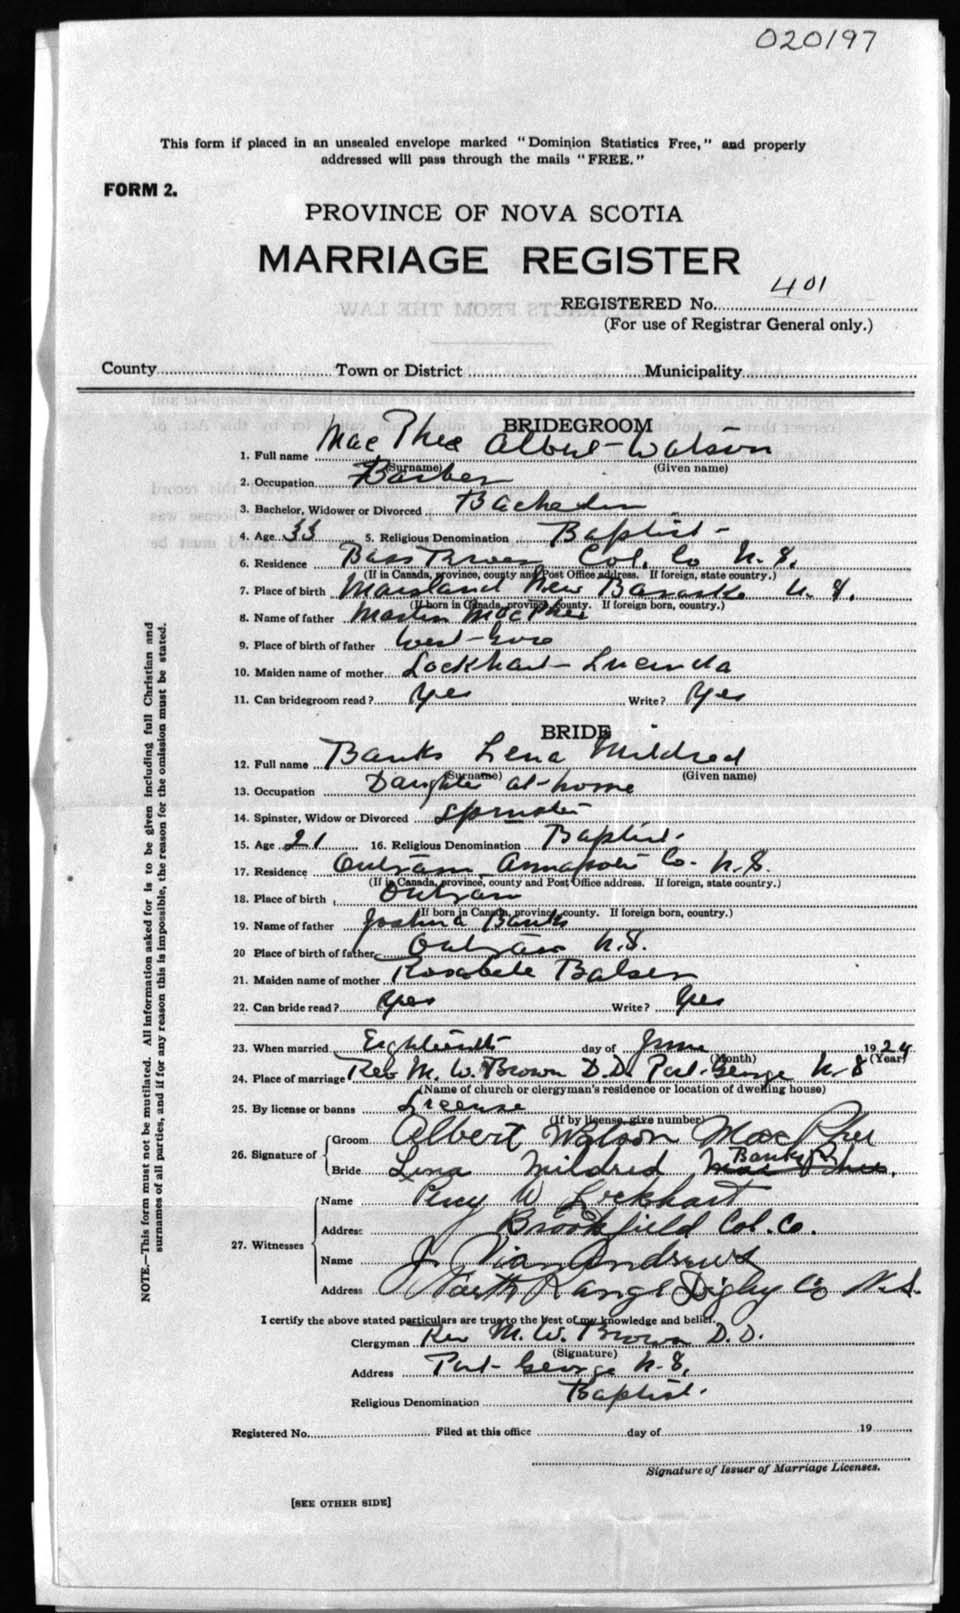 020197
This form if placed in an unsealed envelope marked "Dominion Statistics Free," and properly
addressed will pass through the mails "FREE."
FORM 2.
PROVINCE OF NOVA SCOTIA
MARRIAGE REGISTER
REGISTERED No. 401
(For use of Registrar General only.)
County Town or District Municipality
BRIDEGROOM
1. Full name MacPhee Albert Watson
(Surname) (Given name)
2. Occupation Barber
3. Bachelor, Widower or Divorced Bachelor
4. Age 33 5. Religious Denomination Baptist
6. Residence Bass River Col. Co N.S.
(If in Canada, province, county and Post Office address. If foreign, state country.)
7. Place of birth Maitland New N.S.
(If born in Canada, province, county. If foreign born, country.)
8. Name of father Martin MacPhee
9. Place of birth of father West Gore
10. Maiden name of mother Lockhart Lucinda
11. Can bridegroom read? Yes Write? Yes
BRIDE
12. Full name Banks Lena Mildred
(Surname) (Given name)
13. Occupation Daughter at home
14. Spinster, Widow or Divorced Spinster
15. Age 21 16. Religious Denomination Baptist
17. Residence Outram Annapolis Co. N.S.
(If in Canada, province, county and Post Office address. If foreign, state country.)
18. Place of birth Outram
(If born in Canada, province, county. If foreign born, country.)
19. Name of father Joshua Banks
20 Place of birth of father Outram N.S.
21. Maiden name of mother Rosabele Balser
22. Can bride read? Yes Write? Yes
23. When married Eighteenth day of June 1924
(Month) (Year)
24. Place of marriage Rev M. W. Brown D.D. Port George N.S
(Name of church or clergyman's residence or location of dwelling house)
25. By license or banns License
(If by license, give number)
26. Signature of Groom Albert Watson MacPhee
Bride Lena Mildred Banks MacPhee.
27. Witnesses Name Percy W Lockhart
Address Brookfield Col. Co.
Name J. Vian Andrews
Address North Range Digby Co N.S.
I certify the above stated particulars are true to the best of my knowledge and belief.
Clergyman Rev M. W. Brown D.D.
(Signature)
Address Port George N.S.
Religious Denomination Baptist.
Registered No. Filed at this office day of 19
Signature of Issuer of Marriage Licenses.
[SEE OTHER SIDE]
NOTE.—This form must not be mutilated. All information asked for is to be given including full Christian and
surnames of all parties, and if for any reason this is impossible, the reason for the omission must be stated.